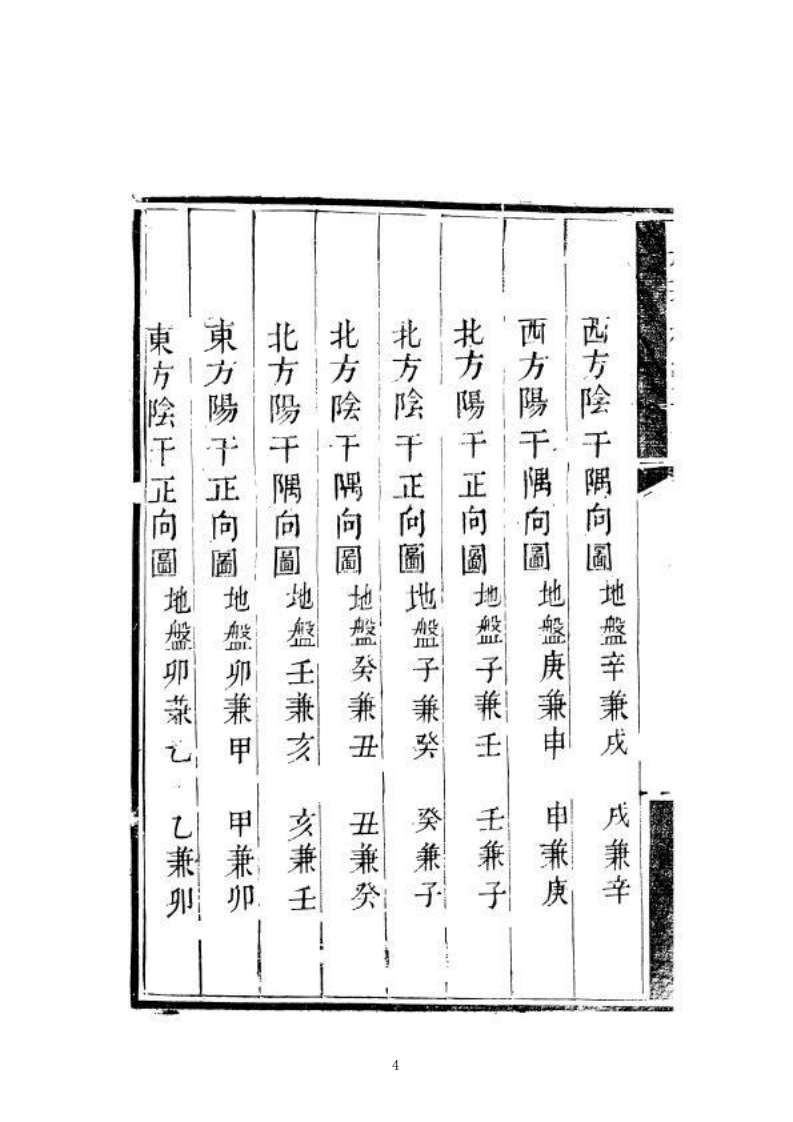 西方陰干隅向圖 地盤辛兼戌 戌兼辛
西方陽干隅向圖 地盤庚兼申 申兼庚
北方陽干正向圖 地盤子兼壬 壬兼子
北方陰干正向圖 地盤子兼癸 癸兼子
北方陰干隅向圖 地盤癸兼丑 丑兼癸
北方陽干隅向圖 地盤壬兼亥 亥兼壬
東方陽干正向圖 地盤卯兼甲 甲兼卯
東方陰干正向圖 地盤卯兼乙 乙兼卯
4